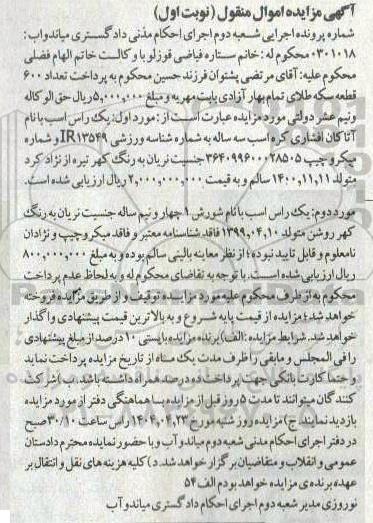 آگهی مزایده اموال منقول (نوبت اول)
شماره پرونده اجرایی شعبه دوم اجرای احکام مدنی دادگستری میاندواب:
۰۳۰۱۰۱۸ محکوم له: خانم ستاره فیاضی قوزلو با وکالت خاتم الهام فضلی
محکوم علیه: آقای مرتضی پشتوان فرزند حسین محکوم به پرداخت تعداد ۶۰۰
قطعه سکه طلای تمام بهار آزادی بابت مهریه و مبلغ ۵,۰۰۰,۰۰۰ ریال حق الوکاله
ونیم عشر دولتی مورد مزایده عبارت است از: مورد اول: یک راس اسب با نام
آتاکان افشاری کره اسب سه ساله به شماره شناسه ورزشی IR۱۳۵۴۹ و شماره
میکروچیپ ۳۶۴۰۹۹۶۰۰۰۲۸۵۰۵ جنسیت نریان به رنگ کهر تیره از نژاد کرد
متولد ۱۴۰۰,۱۱,۱۱ سالم و به قیمت ۲,۰۰۰,۰۰۰,۰۰۰ ریال ارزیابی شده است.
مورد دوم: یک راس اسب با نام شورش ۱ چهار و نیم ساله جنسیت نریان به رنگ
کهر روشن متولد ۱۳۹۹,۰۴,۱۰ فاقد شناسنامه معتبر و فاقد میکروچیپ و نژادان
نامعلوم و قابل تایید نبوده؛ از نظر معاینه بالینی سالم بوده و به مبلغ ۸۰۰,۰۰۰,۰۰۰
ریال ارزیابی شده است. با توجه به تقاضای محکوم له و به لحاظ عدم پرداخت
محکوم به از طرف محکوم علیه مورد مزایده توقیف و از طریق مزایده فروخته
خواهد شد؛ مزایده از قیمت پایه شروع و به بالاترین قیمت پیشنهادی واگذار
خواهد شد. شرایط مزایده: الف) برنده مزایده بایستی ۱۰ درصد از مبلغ پیشنهادی
را فی المجلس و مابقی را ظرف مدت یک ماه از تاریخ مزایده پرداخت نماید
و حتما کارت بانکی جهت پرداخت ده درصد همراه داشته باشد. ب) شرکت
کنندگان میتوانند تا مدت ۵ روز قبل از مزایده با هماهنگی دفتر از مورد مزایده
بازدید نمایند. ج) مزایده روز شنبه مورخ ۱۴۰۴,۰۴,۲۳ راس ساعت ۱۰/۳۰ صبح
در دفتر اجرای احکام مدنی شعبه دوم میاندوآب و با حضور نماینده محترم دادستان
عمومی و انقلاب و متقاضیان برگزار خواهد شد. د) کلیه هزینه های نقل و انتقال بر
عهده برنده ی مزایده خواهد بود م الف ۵۴
نوروزی مدیر شعبه دوم اجرای احکام دادگستری میاندوآب